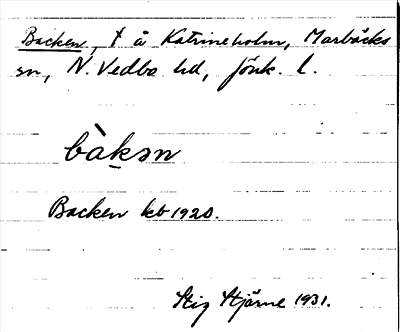 Backen, † å Katrineholm, Marbäcks
sn, N. Vedbo hd, Jönk. l.
bàkən
Backen kb 1920.
Stig Stjärne 1931.